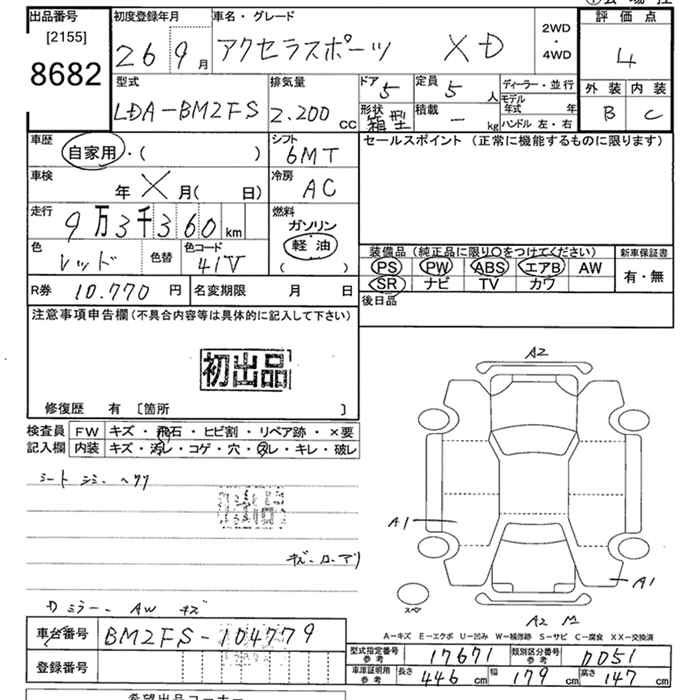 出品番号
[2155]
8682
初度登録年月
26 9月
車名・グレード
アクセラスポーツ XD
2WD
・
4WD
評価点
4
外装 内装
B C
型式
LDA-BM2FS
排気量
2.200 cc
ドア 5
定員 5 人
形状 箱型
積載 - kg
ディーラー・並行
モデル年式 年
ハンドル 左・右
車歴
自家用・( )
シフト
6MT
セールスポイント (正常に機能するものに限ります)
車検
年 X 月( 日)
冷房
AC
走行
9万3千360 km
燃料
ガソリン
軽・油
( )
色
レッド
色替
色コード
41V
装備品 (純正品に限り○をつけてください)
PS PW ABS エアB AW
SR ナビ TV カワ
新車保証書
有・無
R券 10.770 円
名変期限 月 日
後日品
注意事項申告欄(不具合内容等は具体的に記入して下さい)
初出品
修復歴 有 [箇所 ]
検査員
記入欄
FW キズ・飛石・ヒビ割・リペア跡・×要
内装 キズ・汚レ・コゲ・穴・スレ・キレ・破レ
シート シミ ヘタリ
Dミラー AW キズ
A2
A1
A1
A2
スペア
A-キズ E-エクボ U-凹み W-補修跡 S-サビ C-腐食 XX-交換済
車台番号 BM2FS-104779
登録番号
型式指定番号
参考
17671
類別区分番号
参考
0051
車庫証明用
参考
長さ 446 cm
幅 179 cm
高さ 147 cm
希望出品コーナー